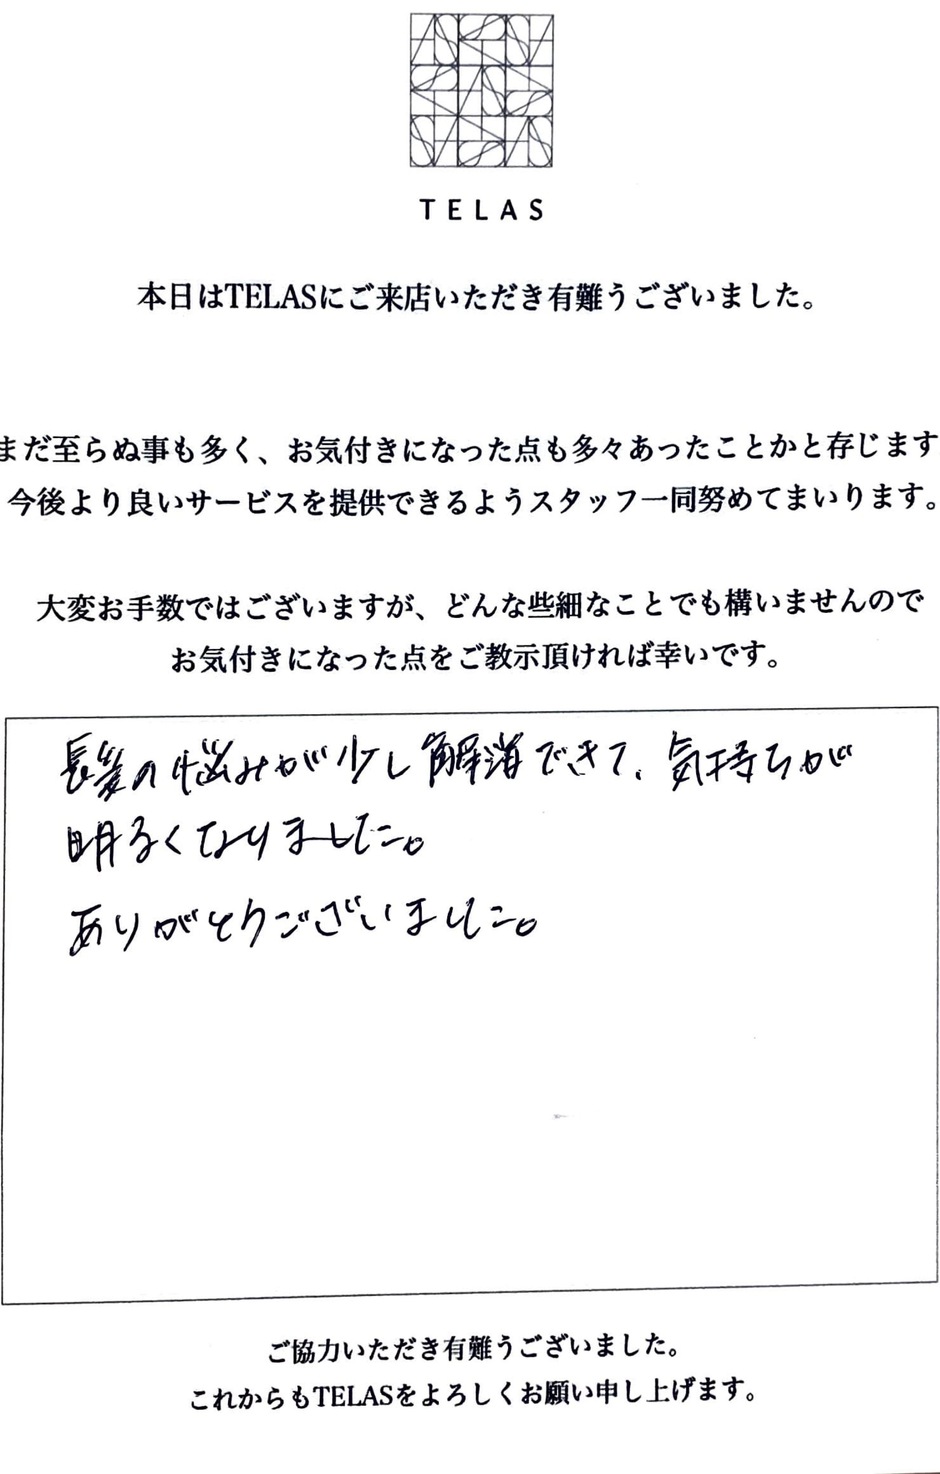 TELAS
本日はTELASにご来店いただき有難うございました。
まだ至らぬ事も多く、お気付きになった点も多々あったことかと存じます
今後より良いサービスを提供できるようスタッフ一同努めてまいります。
大変お手数ではございますが、どんな些細なことでも構いませんので
お気付きになった点をご教示頂ければ幸いです。
長髪の悩みが少し解消できて、気持ちが
明るくなりました。
ありがとうございました。
ご協力いただき有難うございました。
これからもTELASをよろしくお願い申し上げます。